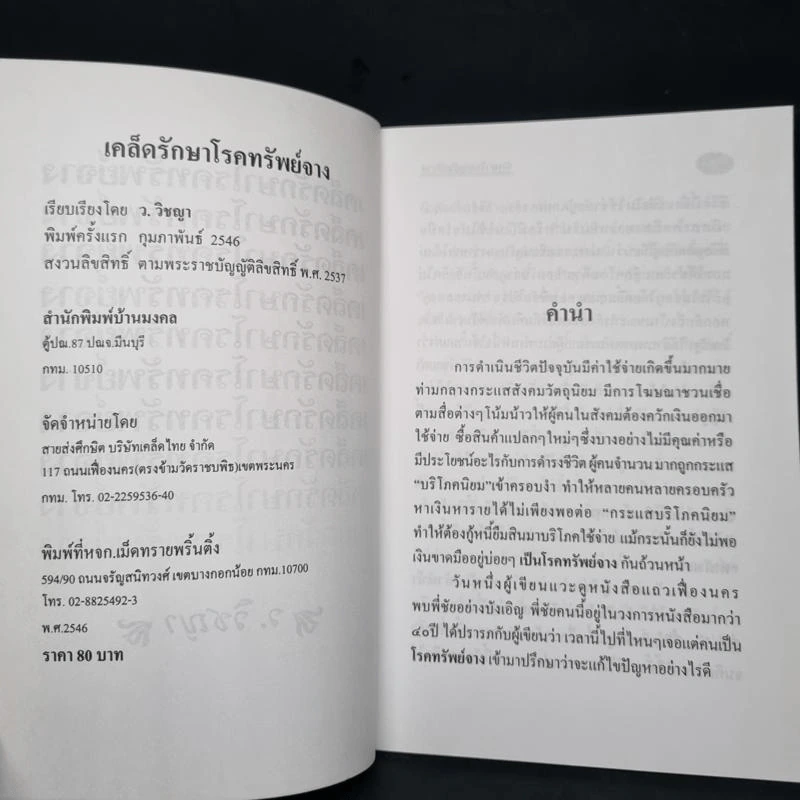 เคล็ดรักษาโรคทรัพย์จาง
เรียบเรียงโดย ว. วิชญา
พิมพ์ครั้งแรก กุมภาพันธ์ 2546
สงวนลิขสิทธิ์ ตามพระราชบัญญัติลิขสิทธิ์ พ.ศ. 2537
สำนักพิมพ์บ้านมงคล
ตู้ปณ.87 ปณจ.มีนบุรี
กทม. 10510
จัดจำหน่ายโดย
สายส่งศึกษิต บริษัทเคล็ดไทย จำกัด
117 ถนนเฟื่องนคร(ตรงข้ามวัดราชบพิธ)เขตพระนคร
กทม. โทร. 02-2259536-40
พิมพ์ที่หจก.เม็ดทรายพริ้นติ้ง
594/90 ถนนจรัญสนิทวงศ์ เขตบางกอกน้อย กทม.10700
โทร. 02-8825492-3
พ.ศ.2546
ราคา 80 บาท
คำนำ
การดำเนินชีวิตปัจจุบันมีค่าใช้จ่ายเกิดขึ้นมากมาย
ท่ามกลางกระแสสังคมวัตถุนิยม มีการโฆษณาชวนเชื่อ
ตามสื่อต่างๆโน้มน้าวให้ผู้คนในสังคมต้องควักเงินออกมา
ใช้จ่าย ซื้อสินค้าแปลกๆใหม่ๆซึ่งบางอย่างไม่มีคุณค่าหรือ
มีประโยชน์อะไรกับการดำรงชีวิต ผู้คนจำนวนมากถูกกระแส
“บริโภคนิยม”เข้าครอบงำ ทำให้หลายคนหลายครอบครัว
หาเงินหารายได้ไม่เพียงพอต่อ “กระแสบริโภคนิยม”
ทำให้ต้องกู้หนี้ยืมสินมาบริโภคใช้จ่าย แม้กระนั้นก็ยังไม่พอ
เงินขาดมืออยู่บ่อยๆ เป็นโรคทรัพย์จาง กันถ้วนหน้า
วันหนึ่งผู้เขียนแวะดูหนังสือแถวเฟื่องนคร
พบพี่ชัยอย่างบังเอิญ พี่ชัยคนนี้อยู่ในวงการหนังสือมากว่า
๔๐ปี ได้ปรารภกับผู้เขียนว่า เวลานี้ไปที่ไหนๆเจอแต่คนเป็น
โรคทรัพย์จาง เข้ามาปรึกษาว่าจะแก้ไขปัญหาอย่างไรดี